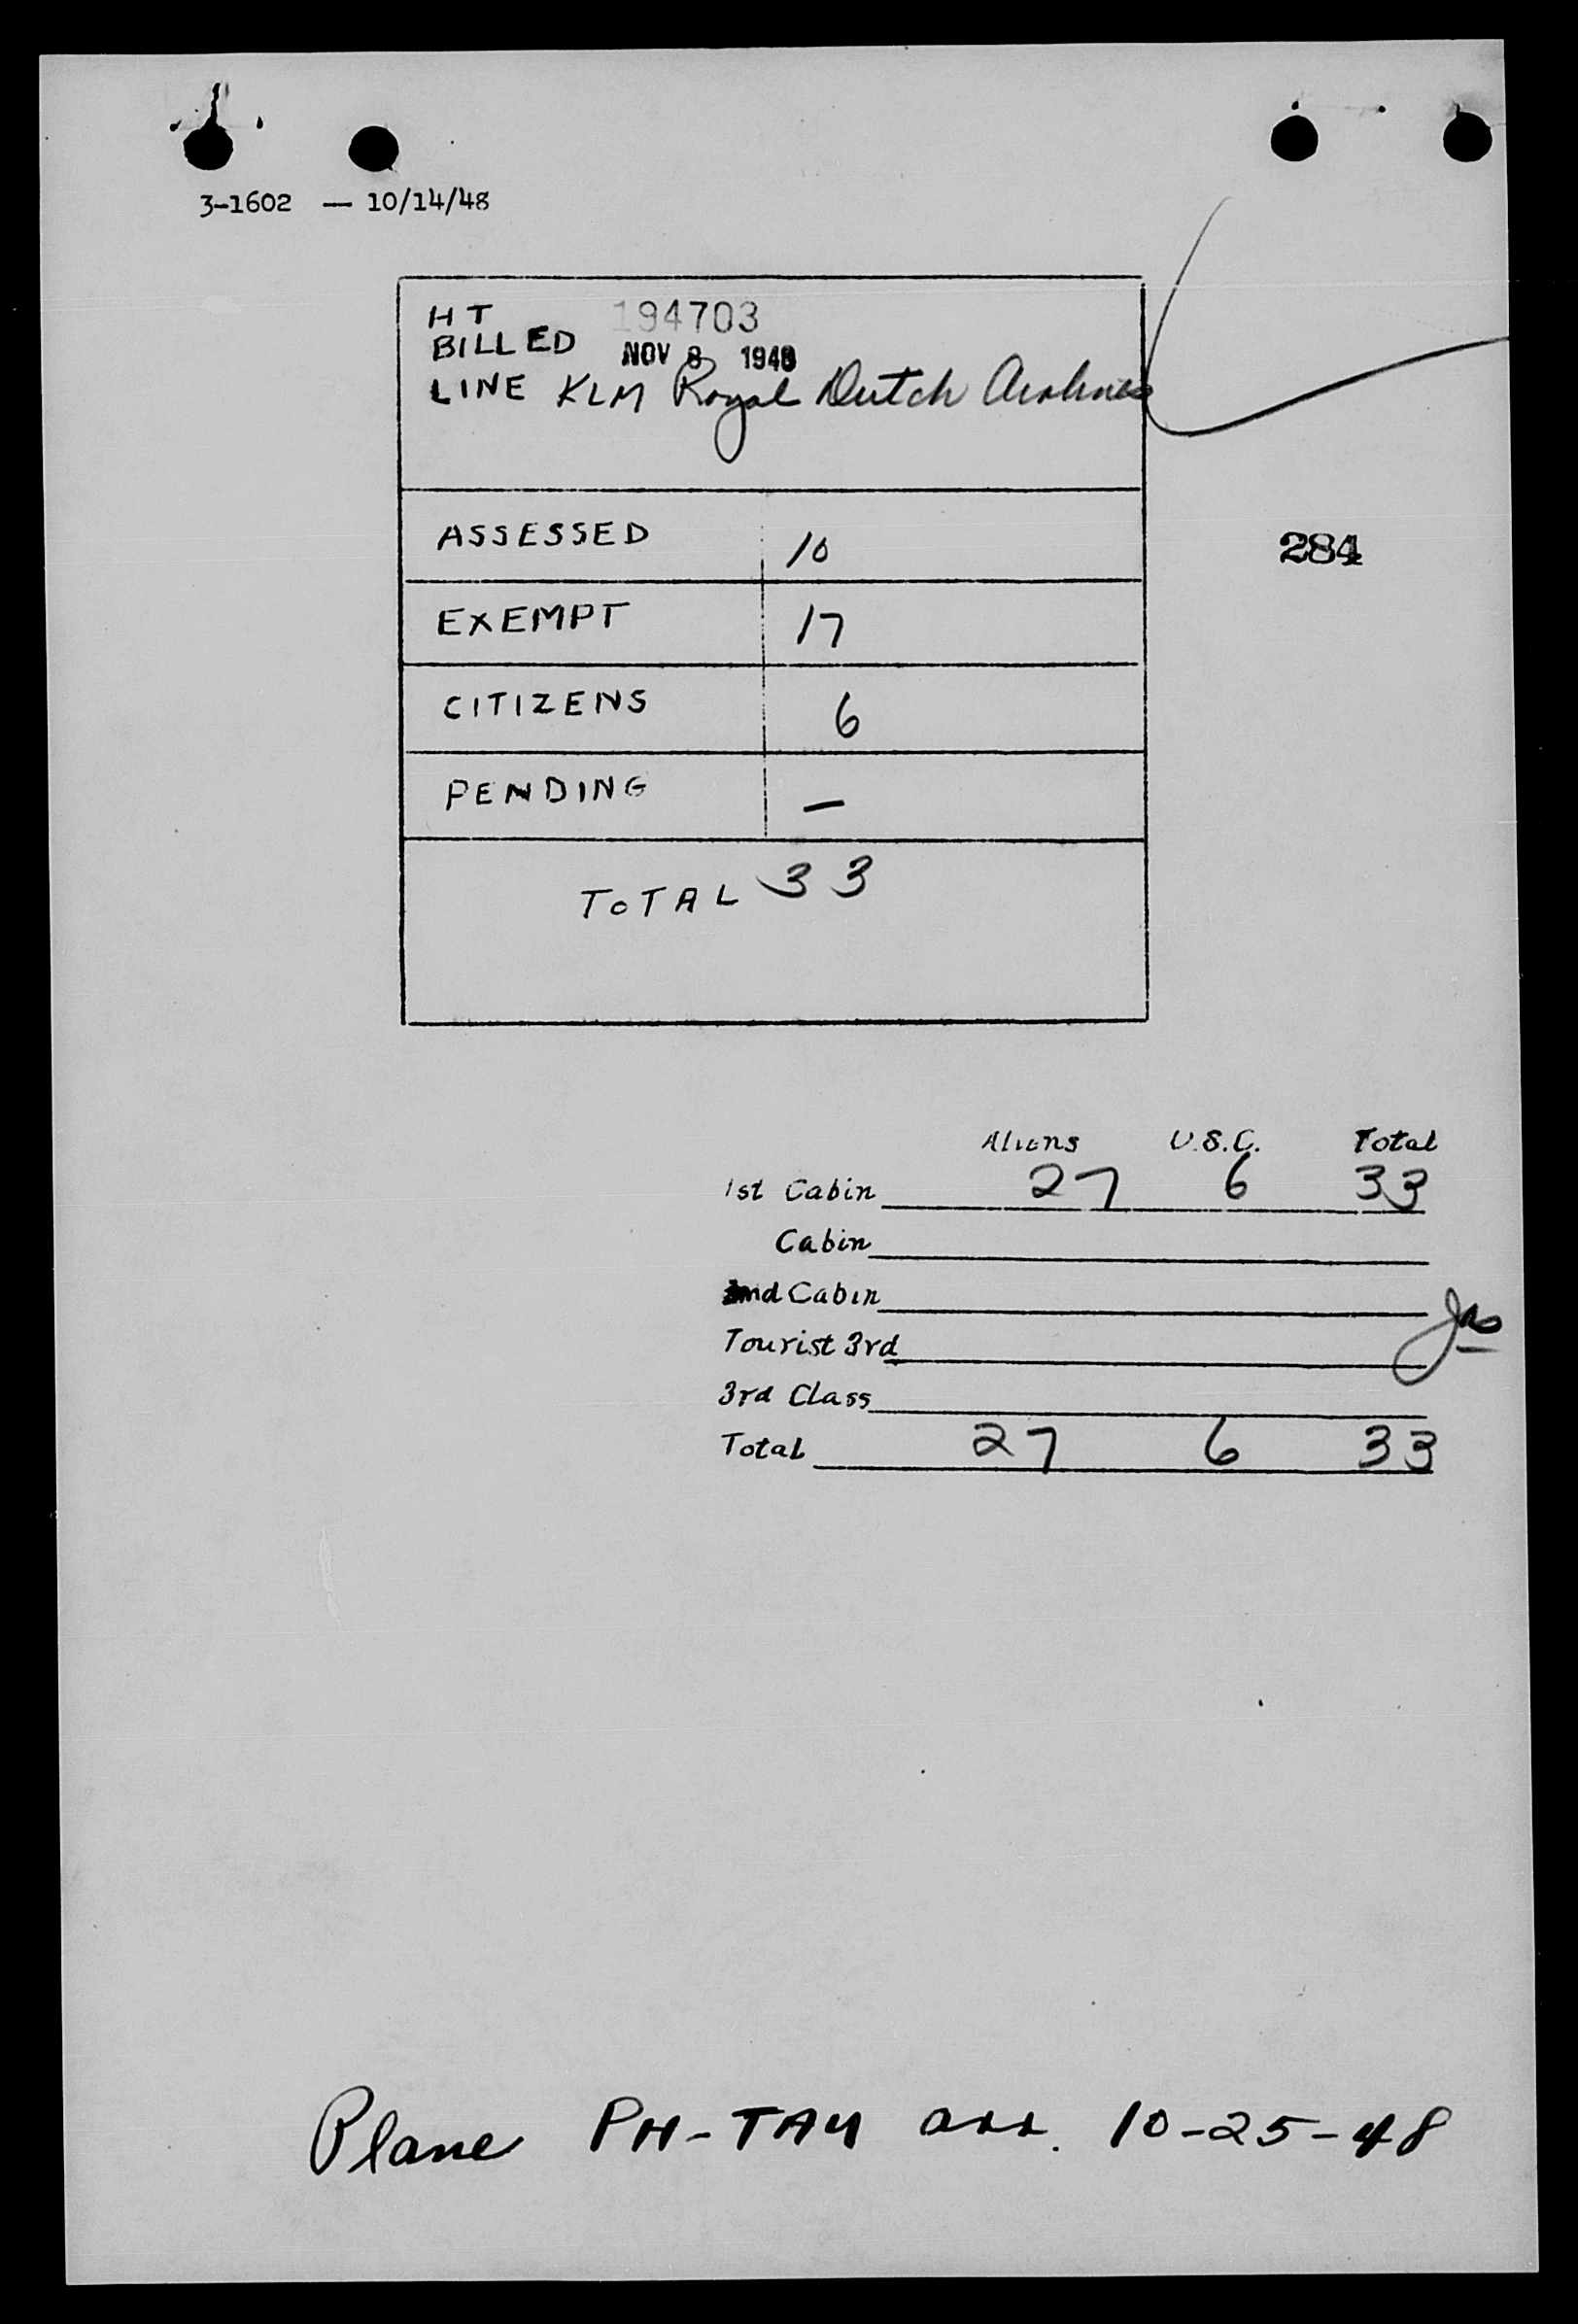 3-1602 — 10/14/48
HT 194703
BILLED NOV 8 1948
LINE KLM Royal Dutch Airlines
ASSESSED 10
284
EXEMPT 17
CITIZENS 6
PENDING —
TOTAL 33
Aliens U.S.C. Total
1st Cabin 27 6 33
Cabin
2nd Cabin
Tourist 3rd
3rd Class
Total 27 6 33
Plane PH-TAY arr. 10-25-48